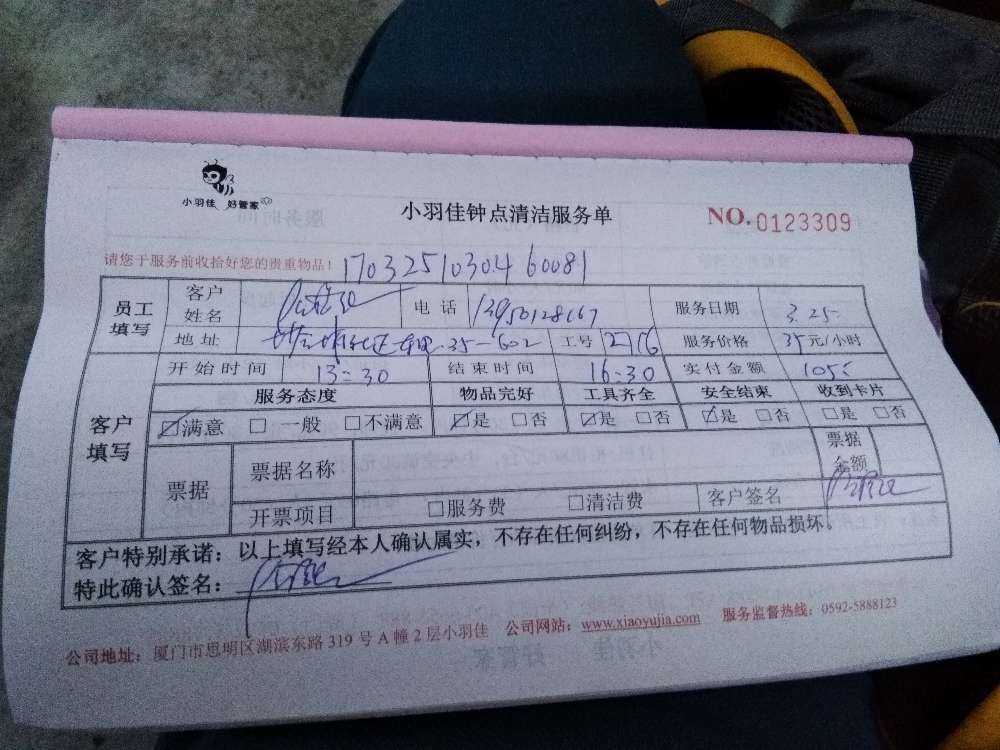 小羽佳 好管家
小羽佳钟点清洁服务单
NO.0123309
请您于服务前收拾好您的贵重物品！ 170325103046 0081
员工填写 客户姓名 电话 13950128667 服务日期 3.25
地址 35-602 工号 2716 服务价格 35元/小时
客户填写 开始时间 13:30 结束时间 16:30 实付金额 105
服务态度 物品完好 工具齐全 安全结束 收到卡片
☑满意 □ 一般 □不满意 ☑是 □否 ☑是 □否 ☑是 □否 □是 □否
票据 票据名称 票据金额
开票项目 □服务费 □清洁费 客户签名
客户特别承诺：以上填写经本人确认属实，不存在任何纠纷，不存在任何物品损坏。
特此确认签名：
公司地址：厦门市思明区湖滨东路 319 号 A 幢 2 层小羽佳 公司网站：www.xiaoyujia.com 服务监督热线：0592-5888123